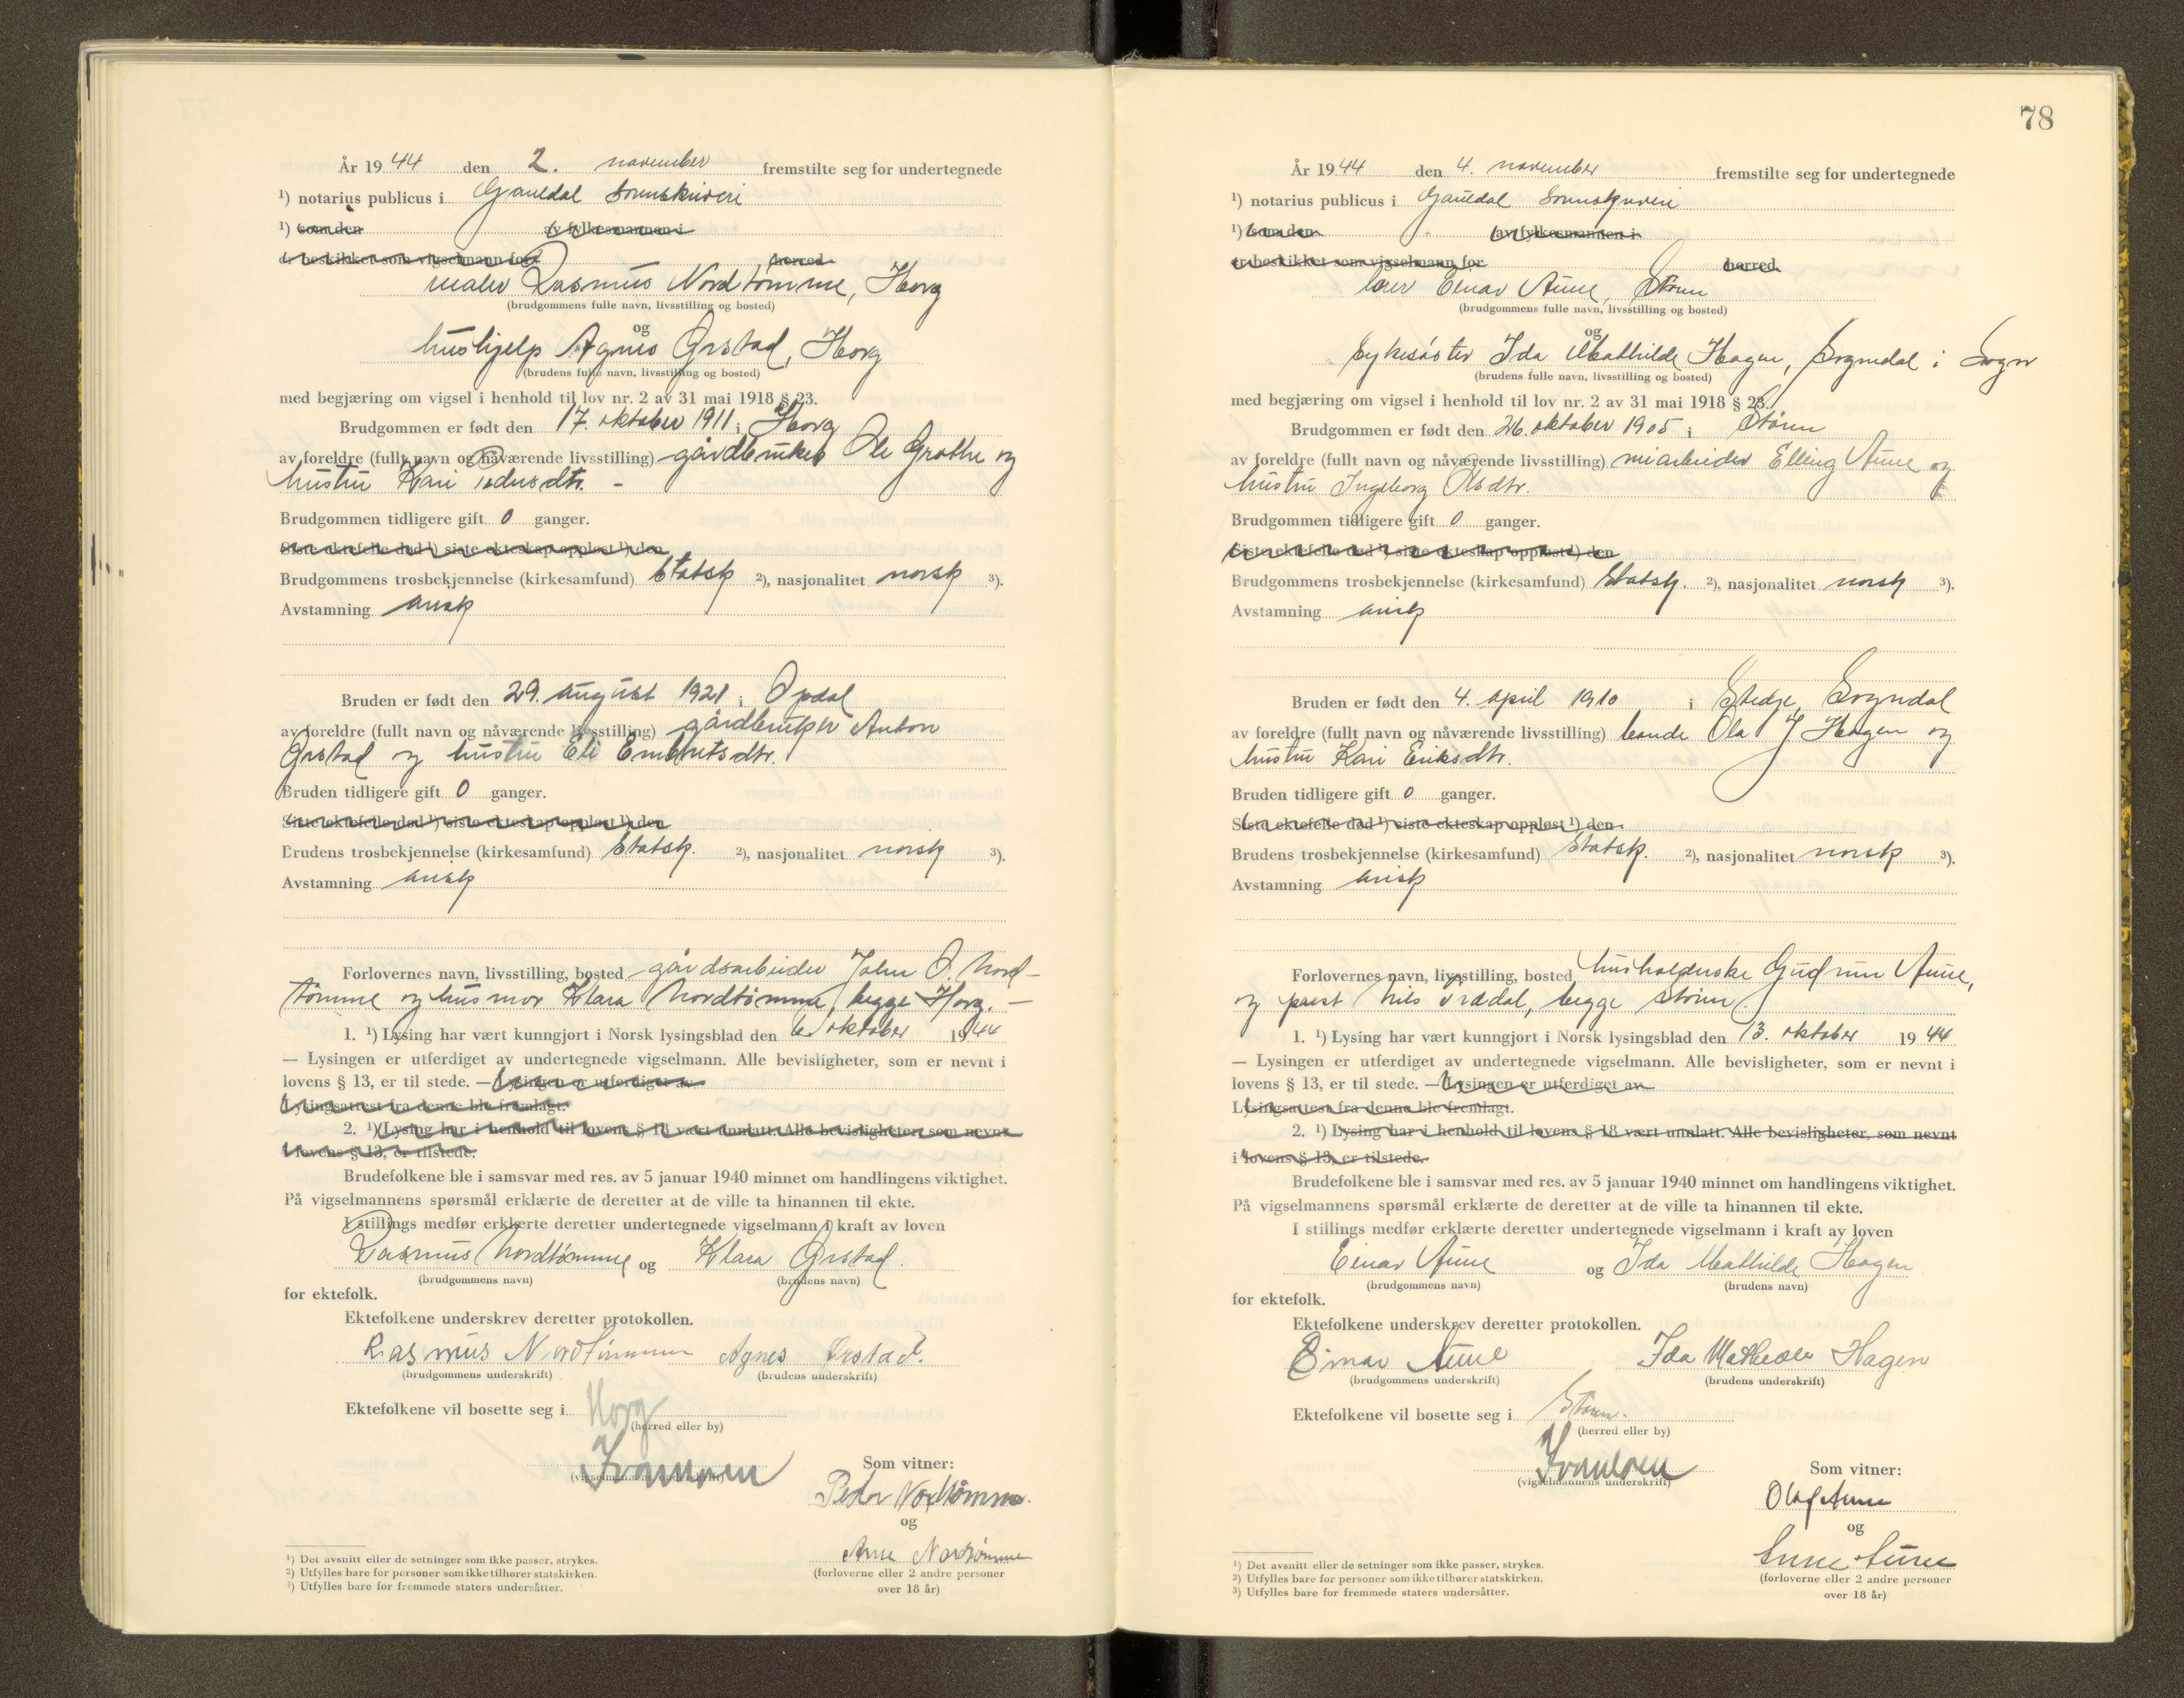 År 1944 den 2. november fremstilte seg for undertegnede
¹) notarius publicus i Gauldal Sorenskriveri
¹) som den av fylkesmannen i
er beskikket som vigselmann for herred
maler Rasmus Nordtømme, Horg
(brudgommens fulle navn, livsstilling og bosted)
og
hushjelp Agnes Ørstad, Horg
(brudens fulle navn, livsstilling og bosted)
med begjæring om vigsel i henhold til lov nr. 2 av 31 mai 1918 § 23.
Brudgommen er født den 17. oktober 1911 i Horg
av foreldre (fullt navn og nåværende livsstilling) gårdbruker Ole Grothe og
hustru Kari
Brudgommen tidligere gift 0 ganger.
Siste ektefelle død ¹) siste ekteskap oppløst ¹) den
Brudgommens trosbekjennelse (kirkesamfund) Statsk ²), nasjonalitet norsk ³).
Avstamning arisk
Bruden er født den 29. august 1921 i Opdal
av foreldre (fullt navn og nåværende livsstilling) gårdbruker Anton
Ørstad og hustru Eli Embretsdtr.
Bruden tidligere gift 0 ganger.
Siste ektefelle død ¹) siste ekteskap oppløst ¹) den
Brudens trosbekjennelse (kirkesamfund) Statsk. ²), nasjonalitet norsk ³).
Avstamning arisk
Forlovernes navn, livsstilling, bosted gårdsarbeider John O. Nord-
tømme og husmor Klara Nordtømme, begge Horg. —
1. ¹) Lysing har vært kunngjort i Norsk lysingsblad den 6. oktober 1944
— Lysingen er utferdiget av undertegnede vigselmann. Alle bevisligheter, som er nevnt i
lovens § 13, er til stede. — Lysingen er utferdiget av
Lysingsattest fra denne ble fremlagt.
2. ¹) Lysing har i henhold til lovens § 18 vært unnlatt. Alle bevisligheter, som nevnt
i lovens § 13, er tilstede.
Brudefolkene ble i samsvar med res. av 5 januar 1940 minnet om handlingens viktighet.
På vigselmannens spørsmål erklærte de deretter at de ville ta hinannen til ekte.
I stillings medfør erklærte deretter undertegnede vigselmann i kraft av loven
Rasmus Nordtømme og Klara Ørstad.
(brudgommens navn) (brudens navn)
for ektefolk.
Ektefolkene underskrev deretter protokollen.
Rasmus Nordtømme Agnes Ørstad.
(brudgommens underskrift) (brudens underskrift)
Ektefolkene vil bosette seg i Horg
(herred eller by)
(vigselmannens underskrift)
Som vitner:
Peder Nordtømme.
og
Arne Nordtømme
(forloverne eller 2 andre personer
over 18 år)
¹) Det avsnitt eller de setninger som ikke passer, strykes.
²) Utfylles bare for personer som ikke tilhører statskirken.
³) Utfylles bare for fremmede staters undersåtter.
78
År 1944 den 4. november fremstilte seg for undertegnede
¹) notarius publicus i Gauldal Sorenskriveri
¹) som den av fylkesmannen i
er beskikket som vigselmann for herred
lærer Einar Aune, Støren
(brudgommens fulle navn, livsstilling og bosted)
og
sykesøster Ida Mathilde Hagen, Sogndal i Sogn
(brudens fulle navn, livsstilling og bosted)
med begjæring om vigsel i henhold til lov nr. 2 av 31 mai 1918 § 23.
Brudgommen er født den 26. oktober 1905 i Støren
av foreldre (fullt navn og nåværende livsstilling) Elling Aune og
hustru Ingeborg Olsdtr.
Brudgommen tidligere gift 0 ganger.
Siste ektefelle død ¹) siste ekteskap oppløst ¹) den
Brudgommens trosbekjennelse (kirkesamfund) Statsk. ²), nasjonalitet norsk ³).
Avstamning arisk
Bruden er født den 4. april 1910 i Stedje, Sogndal
av foreldre (fullt navn og nåværende livsstilling) bonde Ola J Hagen og
hustru Kari Eriksdtr.
Bruden tidligere gift 0 ganger.
Siste ektefelle død ¹) siste ekteskap oppløst ¹) den
Brudens trosbekjennelse (kirkesamfund) Statsk. ²), nasjonalitet norsk ³).
Avstamning arisk
Forlovernes navn, livsstilling, bosted husholderske Gudrun Aune,
og prest Nils begge Støren
1. ¹) Lysing har vært kunngjort i Norsk lysingsblad den 13. oktober 1944
— Lysingen er utferdiget av undertegnede vigselmann. Alle bevisligheter, som er nevnt i
lovens § 13, er til stede. — Lysingen er utferdiget av
Lysingsattest fra denne ble fremlagt.
2. ¹) Lysing har i henhold til lovens § 18 vært unnlatt. Alle bevisligheter, som nevnt
i lovens § 13, er tilstede.
Brudefolkene ble i samsvar med res. av 5 januar 1940 minnet om handlingens viktighet.
På vigselmannens spørsmål erklærte de deretter at de ville ta hinannen til ekte.
I stillings medfør erklærte deretter undertegnede vigselmann i kraft av loven
Einar Aune og Ida Mathilde Hagen
(brudgommens navn) (brudens navn)
for ektefolk.
Ektefolkene underskrev deretter protokollen.
Einar Aune Ida Mathilde Hagen
(brudgommens underskrift) (brudens underskrift)
Ektefolkene vil bosette seg i Støren.
(herred eller by)
(vigselmannens underskrift)
Som vitner:
Olaf Aune
og
Aune
(forloverne eller 2 andre personer
over 18 år)
¹) Det avsnitt eller de setninger som ikke passer, strykes.
²) Utfylles bare for personer som ikke tilhører statskirken.
³) Utfylles bare for fremmede staters undersåtter.